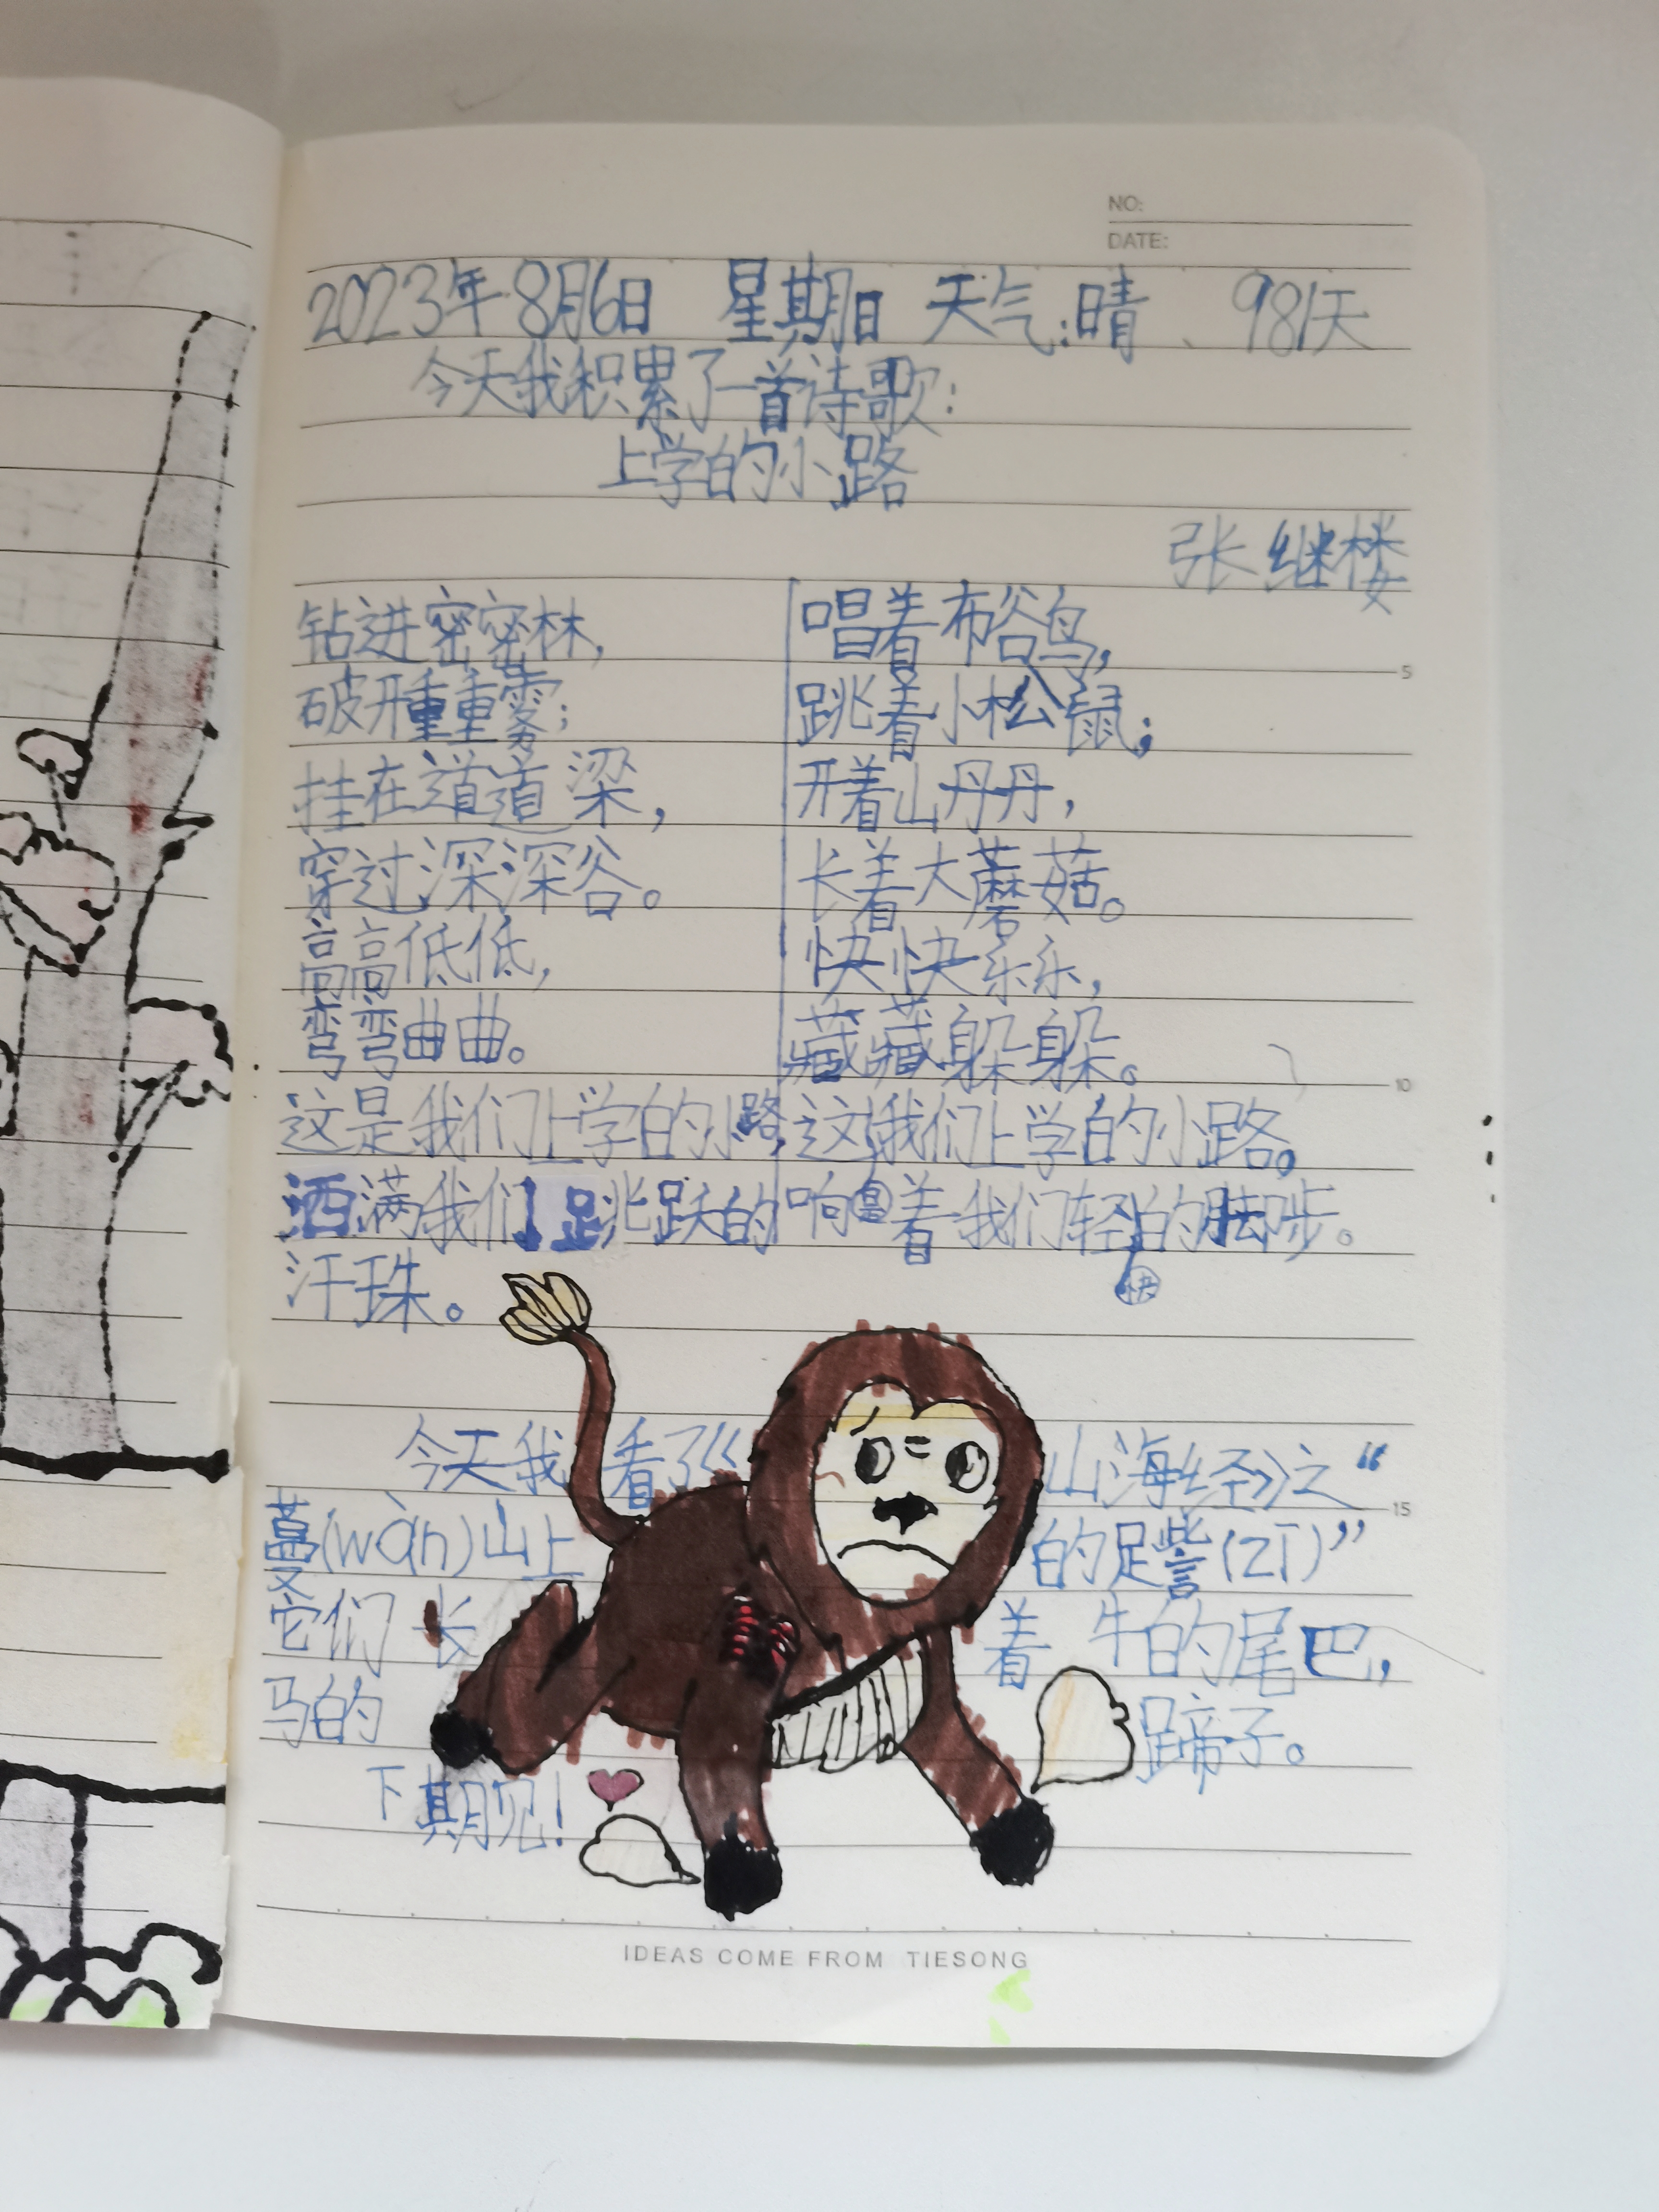 NO:
DATE:
2023年8月6日 星期日 天气:晴、981天
今天我积累了一首诗歌:
上学的小路
张继楼
钻进密密林,
破开重重雾;
挂在道道梁,
穿过深深谷。
高高低低,
弯弯曲曲。
这是我们上学的小路,
洒满我们跳跃的
汗珠。
唱着布谷鸟,
跳着小松鼠;
开着山丹丹,
长着大蘑菇。
快快乐乐,
藏藏躲躲。
这我们上学的小路。
响着我们轻快的脚步。
今天我看了《山海经》之“
蔓(wàn)山上的足訾(zī)”
它们长着牛的尾巴,
马的蹄子。
下期见!
IDEAS COME FROM TIESONG